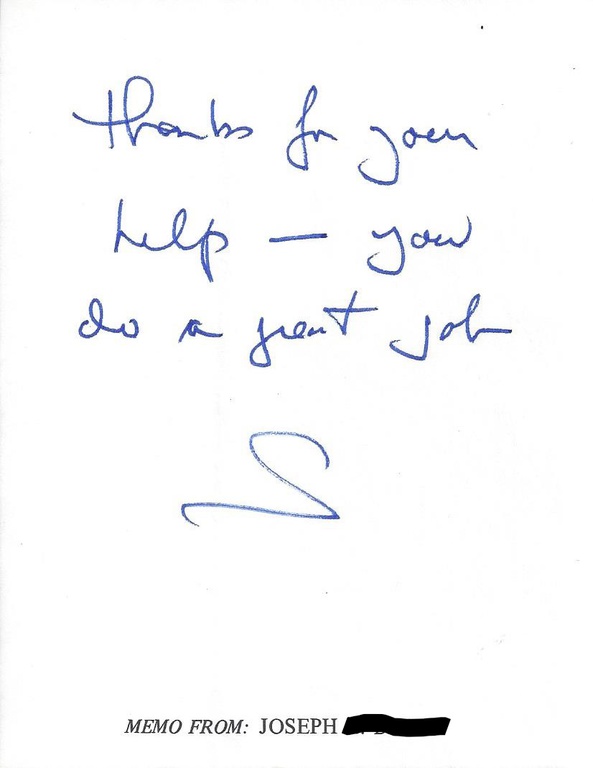 thanks for your
help — you
do a great job
MEMO FROM: JOSEPH